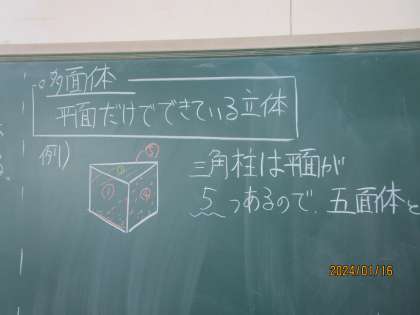 。多面体
平面だけでできている立体
例)
三角柱は平面が
5つあるので、五面体と
①
④
2024/01/16